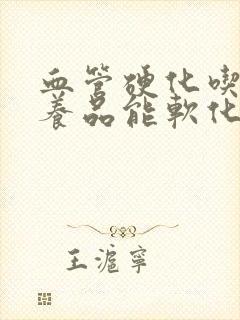 血管硬化喫
養品能軟化
王滬寧